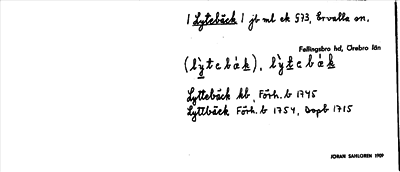 1 Lytebäck 1 jb ml ek 573, Ervalla sn.
Fellingsbro hd, Örebro län
Lyttebäck kb, Förh. b 1745
Lyttbäck Förh. b 1754, Dopb 1715
JÖRAN SAHLGREN 1909